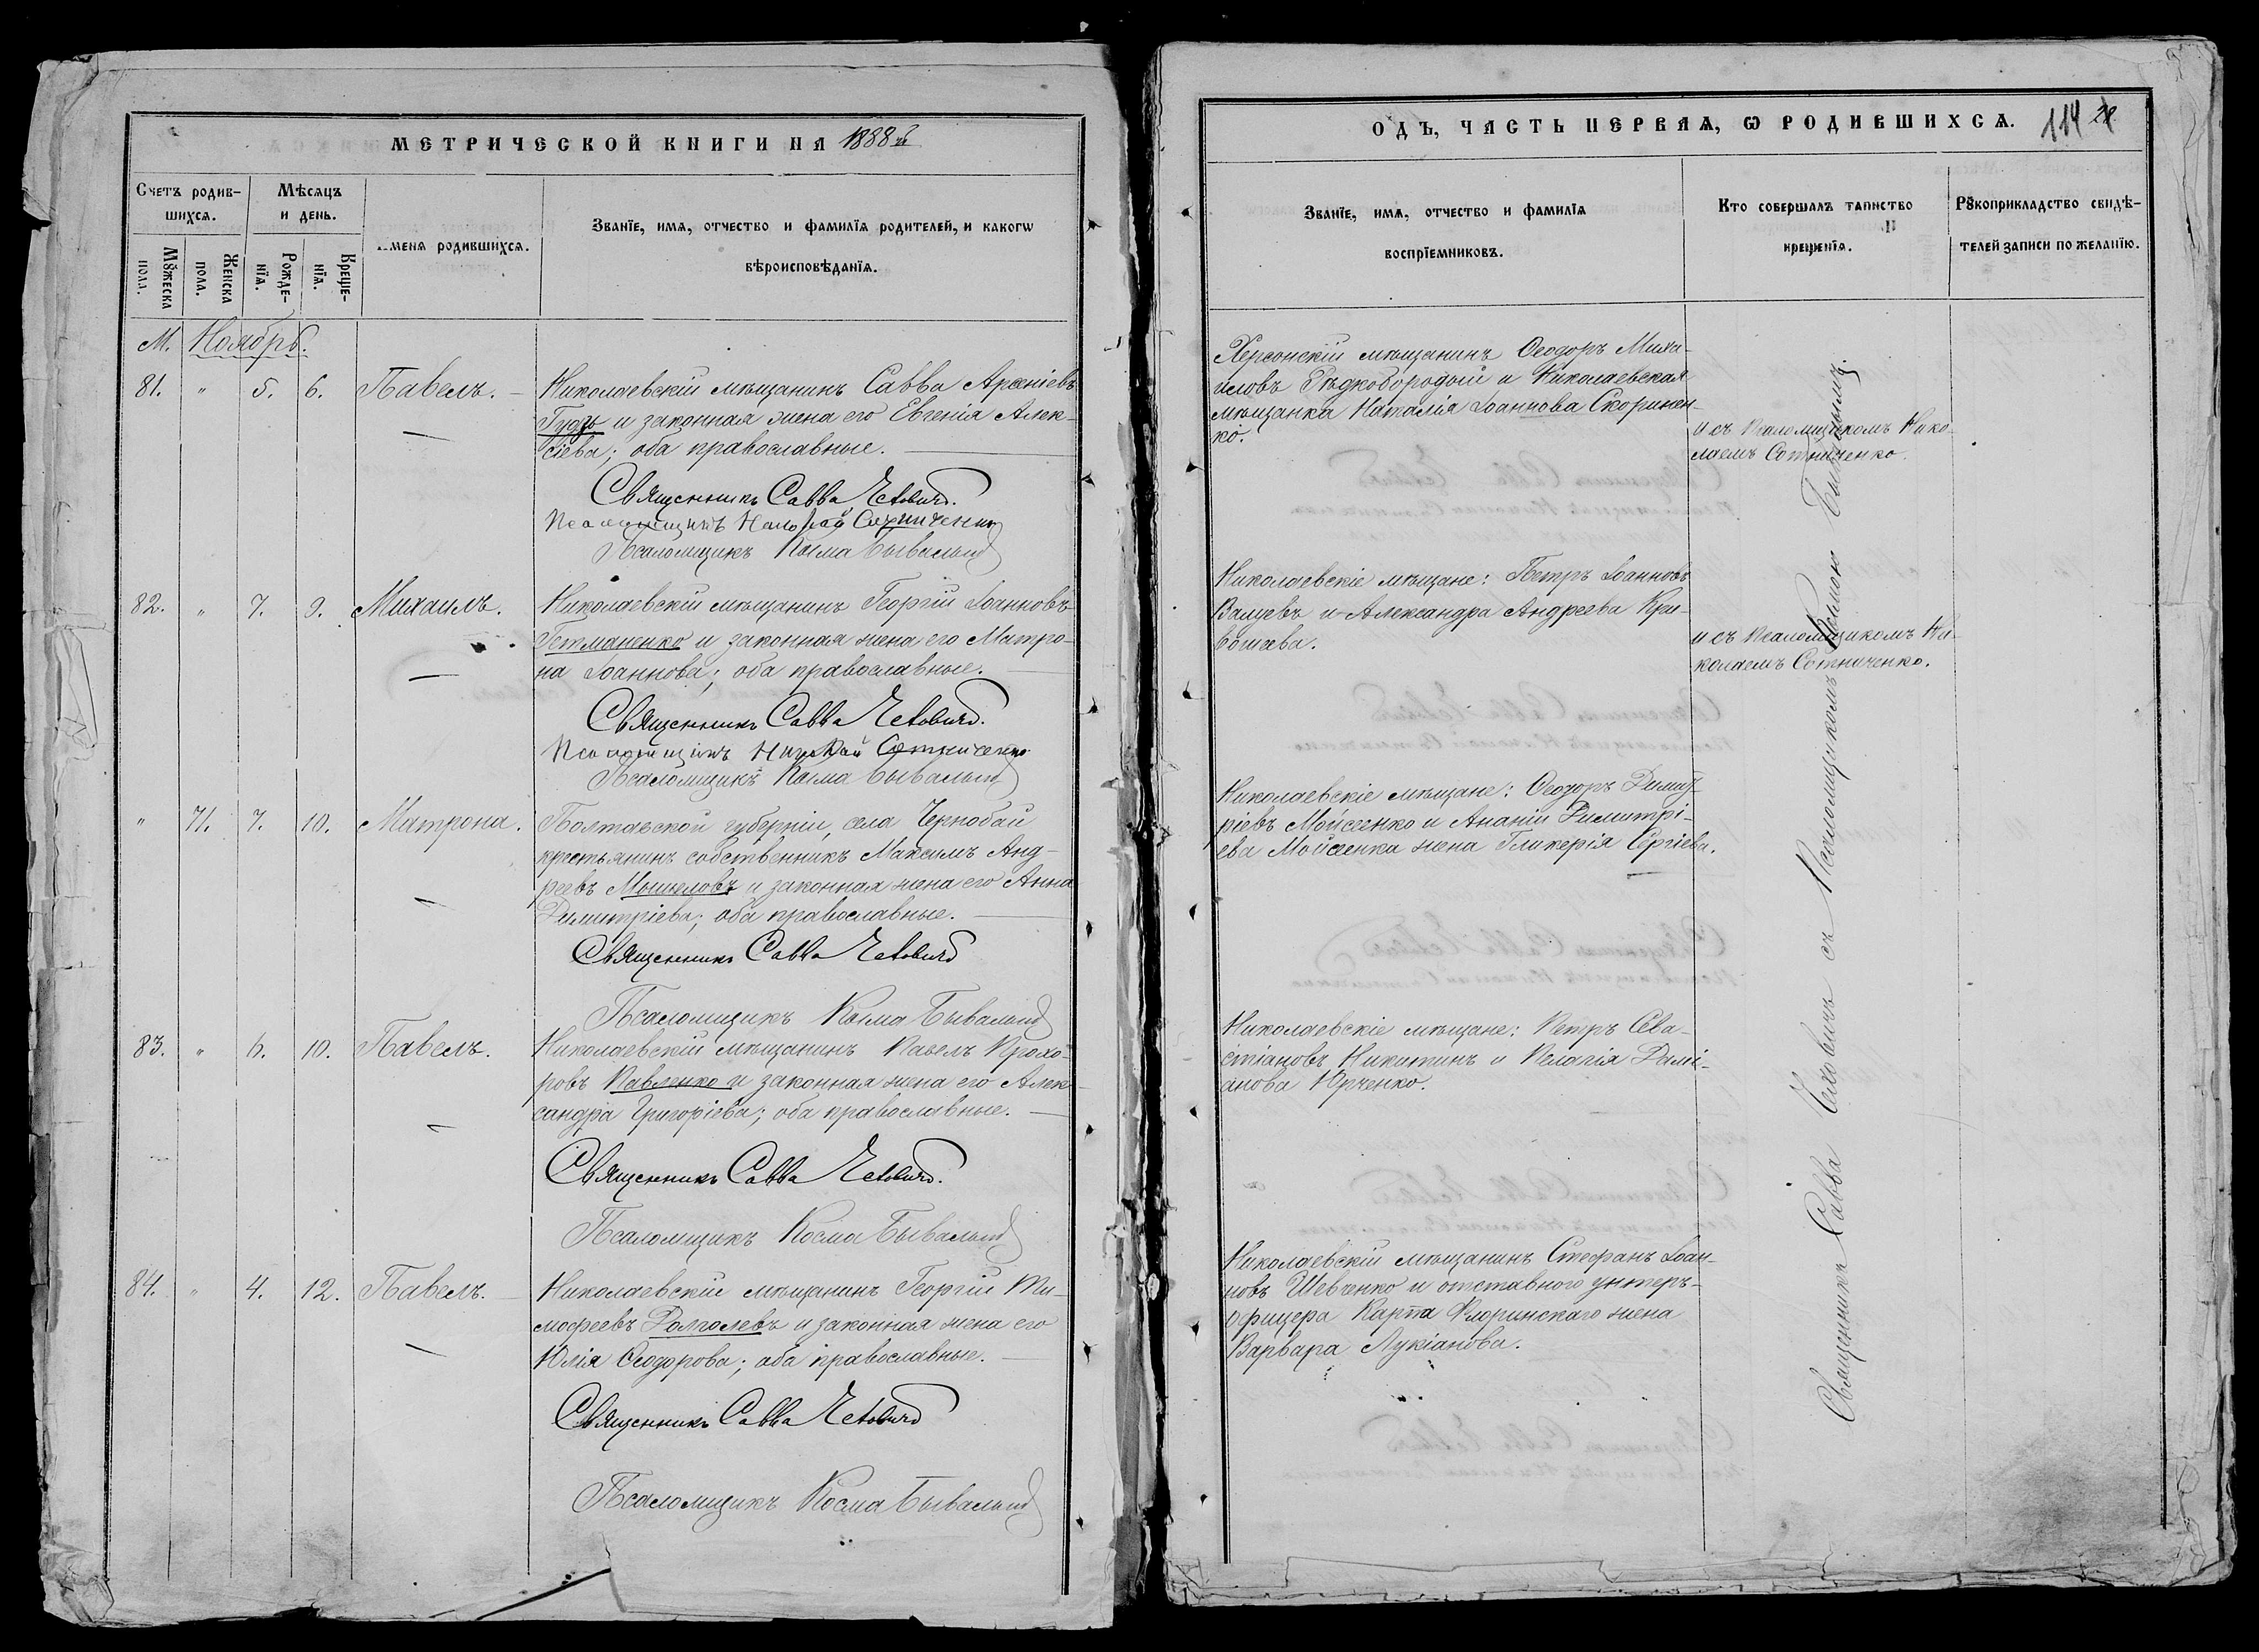 МЕТРИЧЕСКОЙ КНИГИ НА 1888й
Счетъ родив-
шихсѧ.
Мѣсѧцъ
и день.
Мꙋжеска
пола.
Женска
пола.
Рожде-
нїѧ.
Креще-
нїѧ.
мена родившихсѧ.
Званїе, имѧ, отчество и фамилїѧ родителей, и какогѡ
вѣроисповѣданїѧ.
М. Ноябрь.
81. " 5. 6. Павелъ. Николаевскій мѣщанинъ Савва Арсеніевъ
Гудзь и законная жена его Евгенія Алек-
сіева; оба православные.
Священникъ Савва
Псаломщикъ Николай Сотниченко
Псаломщикъ Косма Бывалый
82. " 7. 9. Михаилъ. Николаевскій мѣщанинъ Георгій Іоанновъ
Гетманенко и законная жена его Матро-
на Іоаннова; оба православные.
Священникъ Савва
Псаломщикъ Николай Сотниченко
Псаломщикъ Косма Бывалый
" 71. 7. 10. Матрона. Полтавской губерніи, села Чернобай
крестьянинъ собственникъ Максимъ Анд-
реевъ Мышеловъ и законная жена его Анна
Димитріева; оба православные.
Священникъ Савва
Псаломщикъ Косма Бывалый
83. " 6. 10. Павелъ. Николаевскій мѣщанинъ Павелъ Прохо-
ровъ Павленко и законная жена его Алек-
сандра Григоріева; оба православные.
Священникъ Савва
Псаломщикъ Косма Бывалый
84. " 4. 12. Павелъ. Николаевскій мѣщанинъ Георгій Ти-
мофеевъ Долголевъ и законная жена его
Юлія Ѳеодорова; оба православные.
Священникъ Савва
Псаломщикъ Косма Бывалый
ОДЪ, ЧАСТЬ ПЕРВАѦ, Ѡ РОДИВШИХСѦ. 114
Званїе, имѧ, отчество и фамилїѧ
воспрїемниковъ.
Кто совершалъ таинство
крещенїѧ.
Рꙋкоприкладство свидѣ-
телей записи по желанїю.
Херсонскій мѣщанинъ Ѳеодоръ Миха-
иловъ Рѣдкобородый и Николаевская
мѣщанка Наталія Іоаннова Скоринен-
ко.
и съ Псаломщикомъ Нико-
лаемъ Сотниченко.
Николаевскіе мѣщане: Петръ Іоанновъ
Валуевъ и Александра Андреева Кри-
вошеева.
и съ Псаломщикомъ Ни-
колаемъ Сотниченко.
Николаевскіе мѣщане: Ѳеодоръ Димит-
ріевъ Мойсеенко и Ананіи Димитрі-
ева Мойсеенка жена Гликерія Сергіева.
Николаевскіе мѣщане: Петръ Сева-
стіановъ Никитинъ и Пелагія Дамі-
анова Юрченко.
Николаевскій мѣщанинъ Стефанъ Іоан-
новъ Шевченко и отставного унтеръ-
офицера Карпа Флоринскаго жена
Варвара Лукіанова.
Священникъ Савва съ Псаломщикомъ Космою Бывалымъ